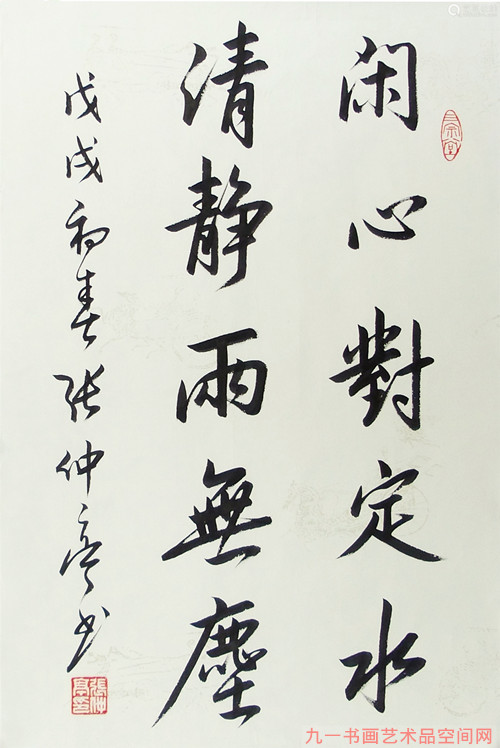 閑心對定水
清静雨無塵
戊戌初春张仲亭书
張仲亭書
九一书画艺术品空间网